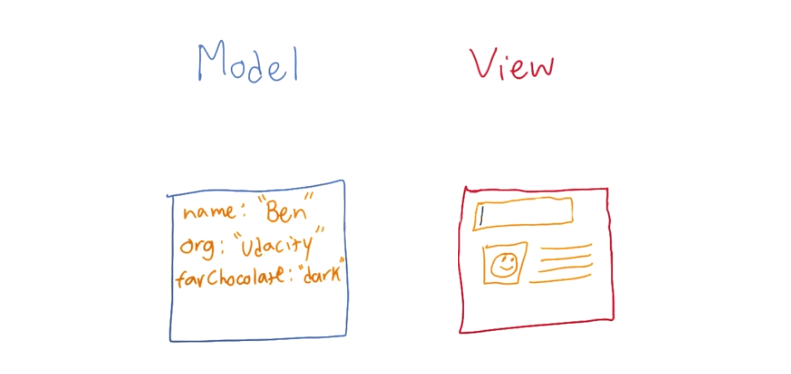 Model
View
name: "Ben"
org: "Udacity"
favChocolate: "dark"